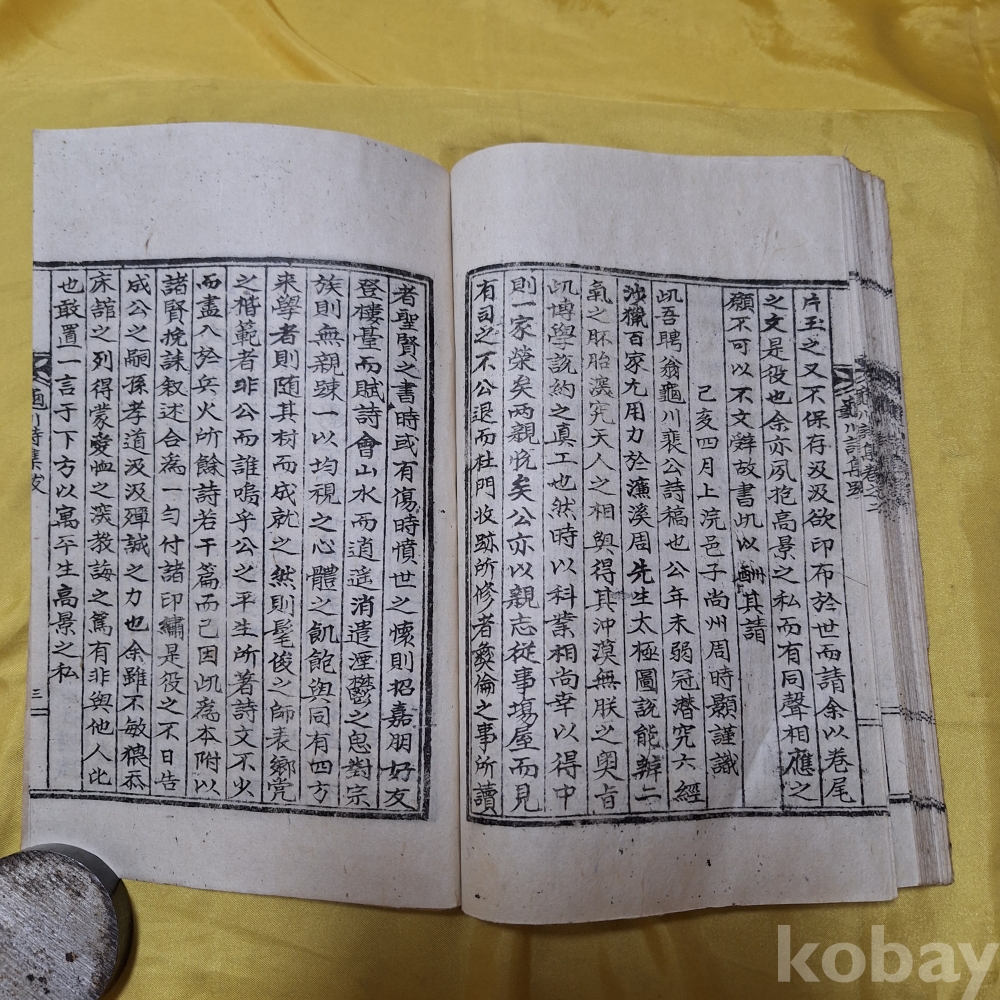 片玉之又不保存汲汲欲印布於世而請余以卷尾
之文是役也余亦夙抱高景之私而有同聲相應之
願不可以不文辭故書此以酬其請
己亥四月上浣邑子尚州周時顯謹識
此吾聘翁龜川裵公詩稿也公年未弱冠潛究六經
涉獵百家尤用力於濂溪周先生太極圖說能辨二
氣之胚胎深究天人之相與得其沖漠無朕之奧旨
此博學說約之真工也然時以科業相尚幸以得中
則一家榮矣兩親悅矣公亦以親志從事場屋而見
有司之不公退而杜門收跡所修者彝倫之事所讀
者聖賢之書時或有傷時憤世之懷則招嘉朋好友
登樓臺而賦詩會山水而逍遙消遣湮鬱之思對宗
族則無親踈一以均視之心體之飢飽與同有四方
来學者則随其材而成就之然則髦俊之師表鄉党
之楷範者非公而誰嗚乎公之平生所著詩文不少
而盡入於兵火所餘詩若干篇而已因此為本附以
諸賢挽誄敘述合為一勻付諸印繡是役之不日告
成公之嗣孫孝道汲汲殫誠之力也余雖不敏猥忝
床舘之列得蒙愛恤之深教誨之篤有非與他人比
也敢置一言于下方以寓平生高景之私
龜川詩集跋
三
kobay